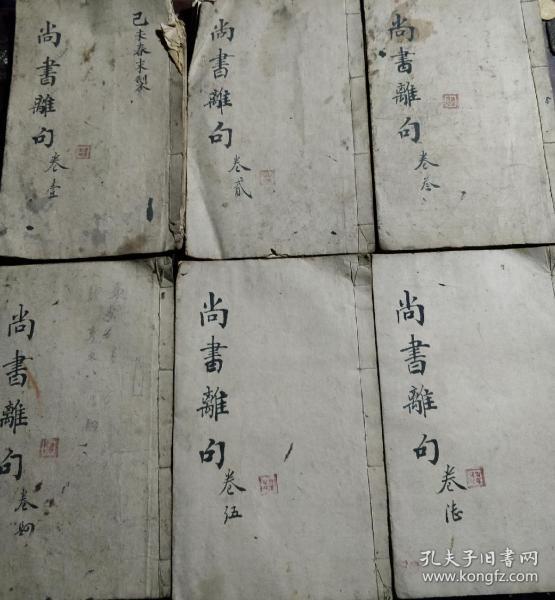 己未春末製
尚書離句
卷壹
尚書離句
卷貳
尚書離句
卷叁
尚書離句
卷
尚書離句
卷伍
尚書離句
卷陆
孔夫子旧书网
www.kongfz.com